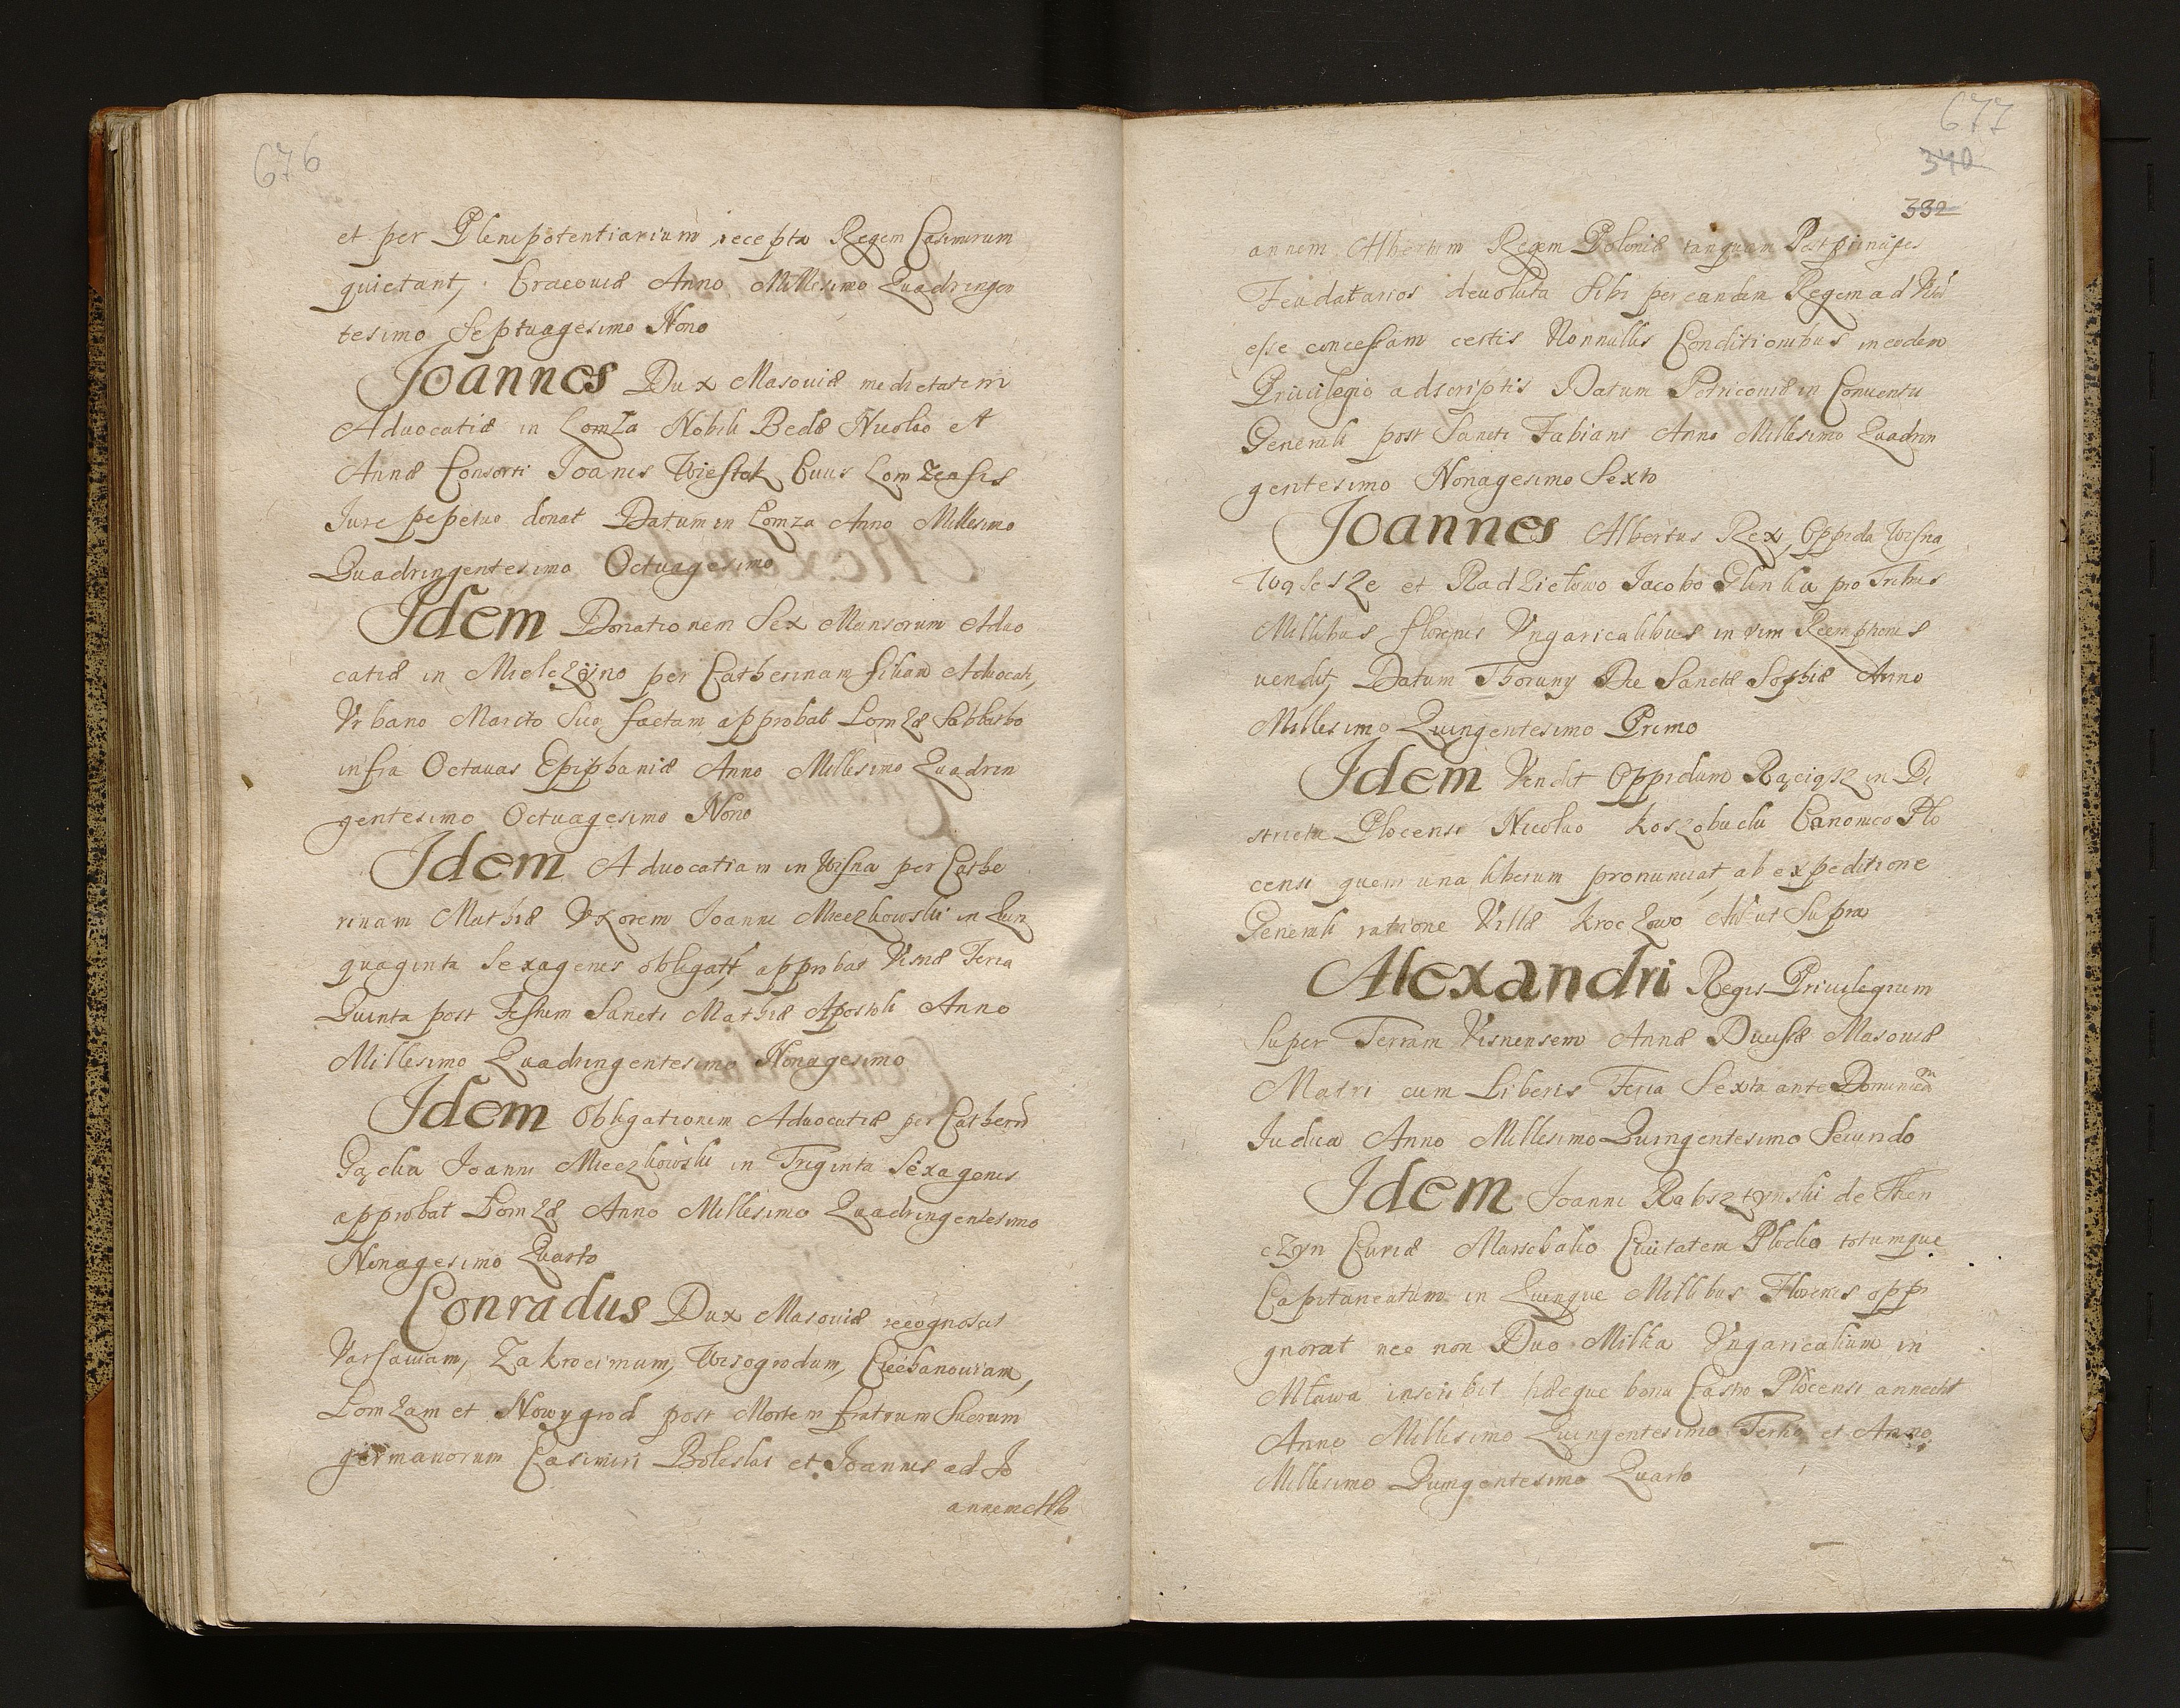 676
et per Plenipotentiarium recepta Regem Casimirum
quietant, Cracouiæ Anno Millesimo Quadringen
tesimo Septuagesimo Nono
Joannes Dux Masouiæ medietatem
Aduocatiæ in Lomza Nobili Bedæ Nicolao et
Annæ Consorti Joanis Ciuis
Jure donat Datum in Lomza Anno Millesimo
Quadringentesimo Octuagesimo
Idem Donationem Sex Mansorum Aduo
catiæ in per Catherinam filiam Aduocati,
Vrbano Marito Suo factam approbat Lomzæ Sabbatho
infra Octauas Epiphaniæ Anno Millesimo Quadrin
gentesimo Octuagesimo Nono
Idem Aduocatiam in Wisna per Cathe
rinam Mathiæ Vxorem Joanni Mieczkowski in Quin
quaginta Sexagenis approbat Visnæ Feria
Quinta post Festum Sancti Mathiæ Apostoli Anno
Millesimo Quadringentesimo Nonagesimo
Idem Obligationem Aduocatiæ per
Joanni Mieczkowski in Triginta Sexagenis
approbat Lomzæ Anno Millesimo Quadringentesimo
Nonagesimo Quarto
Conradus Dux Masouiæ recognoscit
Varsauiam, Zakrocimum, Wisogrodum, Ciechanouiam,
Lomzam et Nowygrod post Mortem fratrum Suorum
germanorum Casimiri Boleslai et Joannis ad Jo
annem Alb
677
340
332
annem Albertum Regem Poloniæ tanquam Post principes
Feudatarios deuoluta Sibi per eundem Regem ad
esse concessam certis Nonnullis Conditionibus in eodem
Priuilegio adscriptis Datum Petricouiæ in Conuentu
Generali post Sancti Fabiani Anno Millesimo Quadrin
gentesimo Nonagesimo Sexto
Joannes Albertus Rex, Oppida Wisna,
Wąsosze et Radziełowo Jacobo Glinka pro Tribus
Millibus florenis Vngaricalibus in vim Reemptionis
vendit, Datum Thoruny Die Sanctæ Sophiæ Anno
Millesimo Quingentesimo Primo
Idem Vendit Oppidum Raciąsz in Di
strictu Plocensi Nicolao Koszobudu Canonico Plo
censi quem una liberum pronunciat, ab expeditione
Generali ratione Villæ Kroczewo ut Supra
Alexandri Regis Priuilegium
Super Terram Visnensem Annæ Ducissæ Masouiæ
Matri cum Liberis Feria Sexta ante Dominicam
Judica Anno Millesimo Quingentesimo Secundo
Idem Joanni Rabsztynski de Then
czyn Curiæ Marschalio Ciuitatem Plocko totumque
Capitaneatum in Quinque Millibus Florenis oppi
gnorat nec non Duo Millia Vngaricalium in
Mława inscribit hæcque bona Castro Plocensi annectit
Anno Millesimo Quingentesimo Tertio et Anno
Millesimo Quingentesimo Quarto